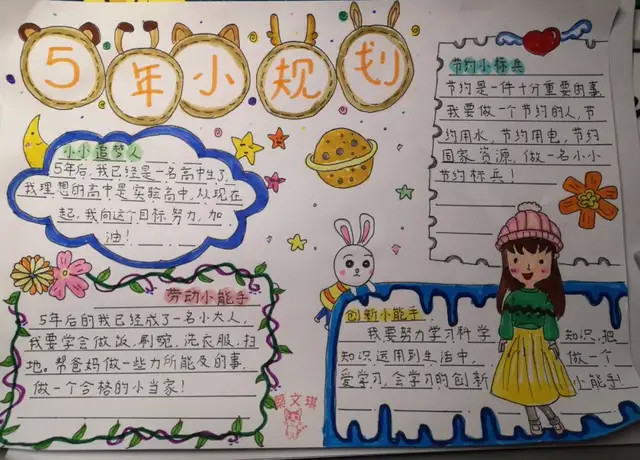 5年小规划
小小追梦人
5年后,我已经是一名高中生了,
我理想的高中是实验高中,从现在
起,我向这个目标努力,加
油!
节约小标兵
节约是一件十分重要的事,
我要做一个节约的人,节
约用水,节约用电,节约
国家资源,做一名小小
节约标兵!
劳动小能手
5年后的我已经成了一名小大人,
我要学会做饭,刷碗,洗衣服,扫
地。帮爸妈做一些力所能及的事.
做一个合格的小当家!
创新小能手
我要努力学习科学知识,把
知识运用到生活中,做一个
爱学习,会学习的创新小能手!
蔡文琪